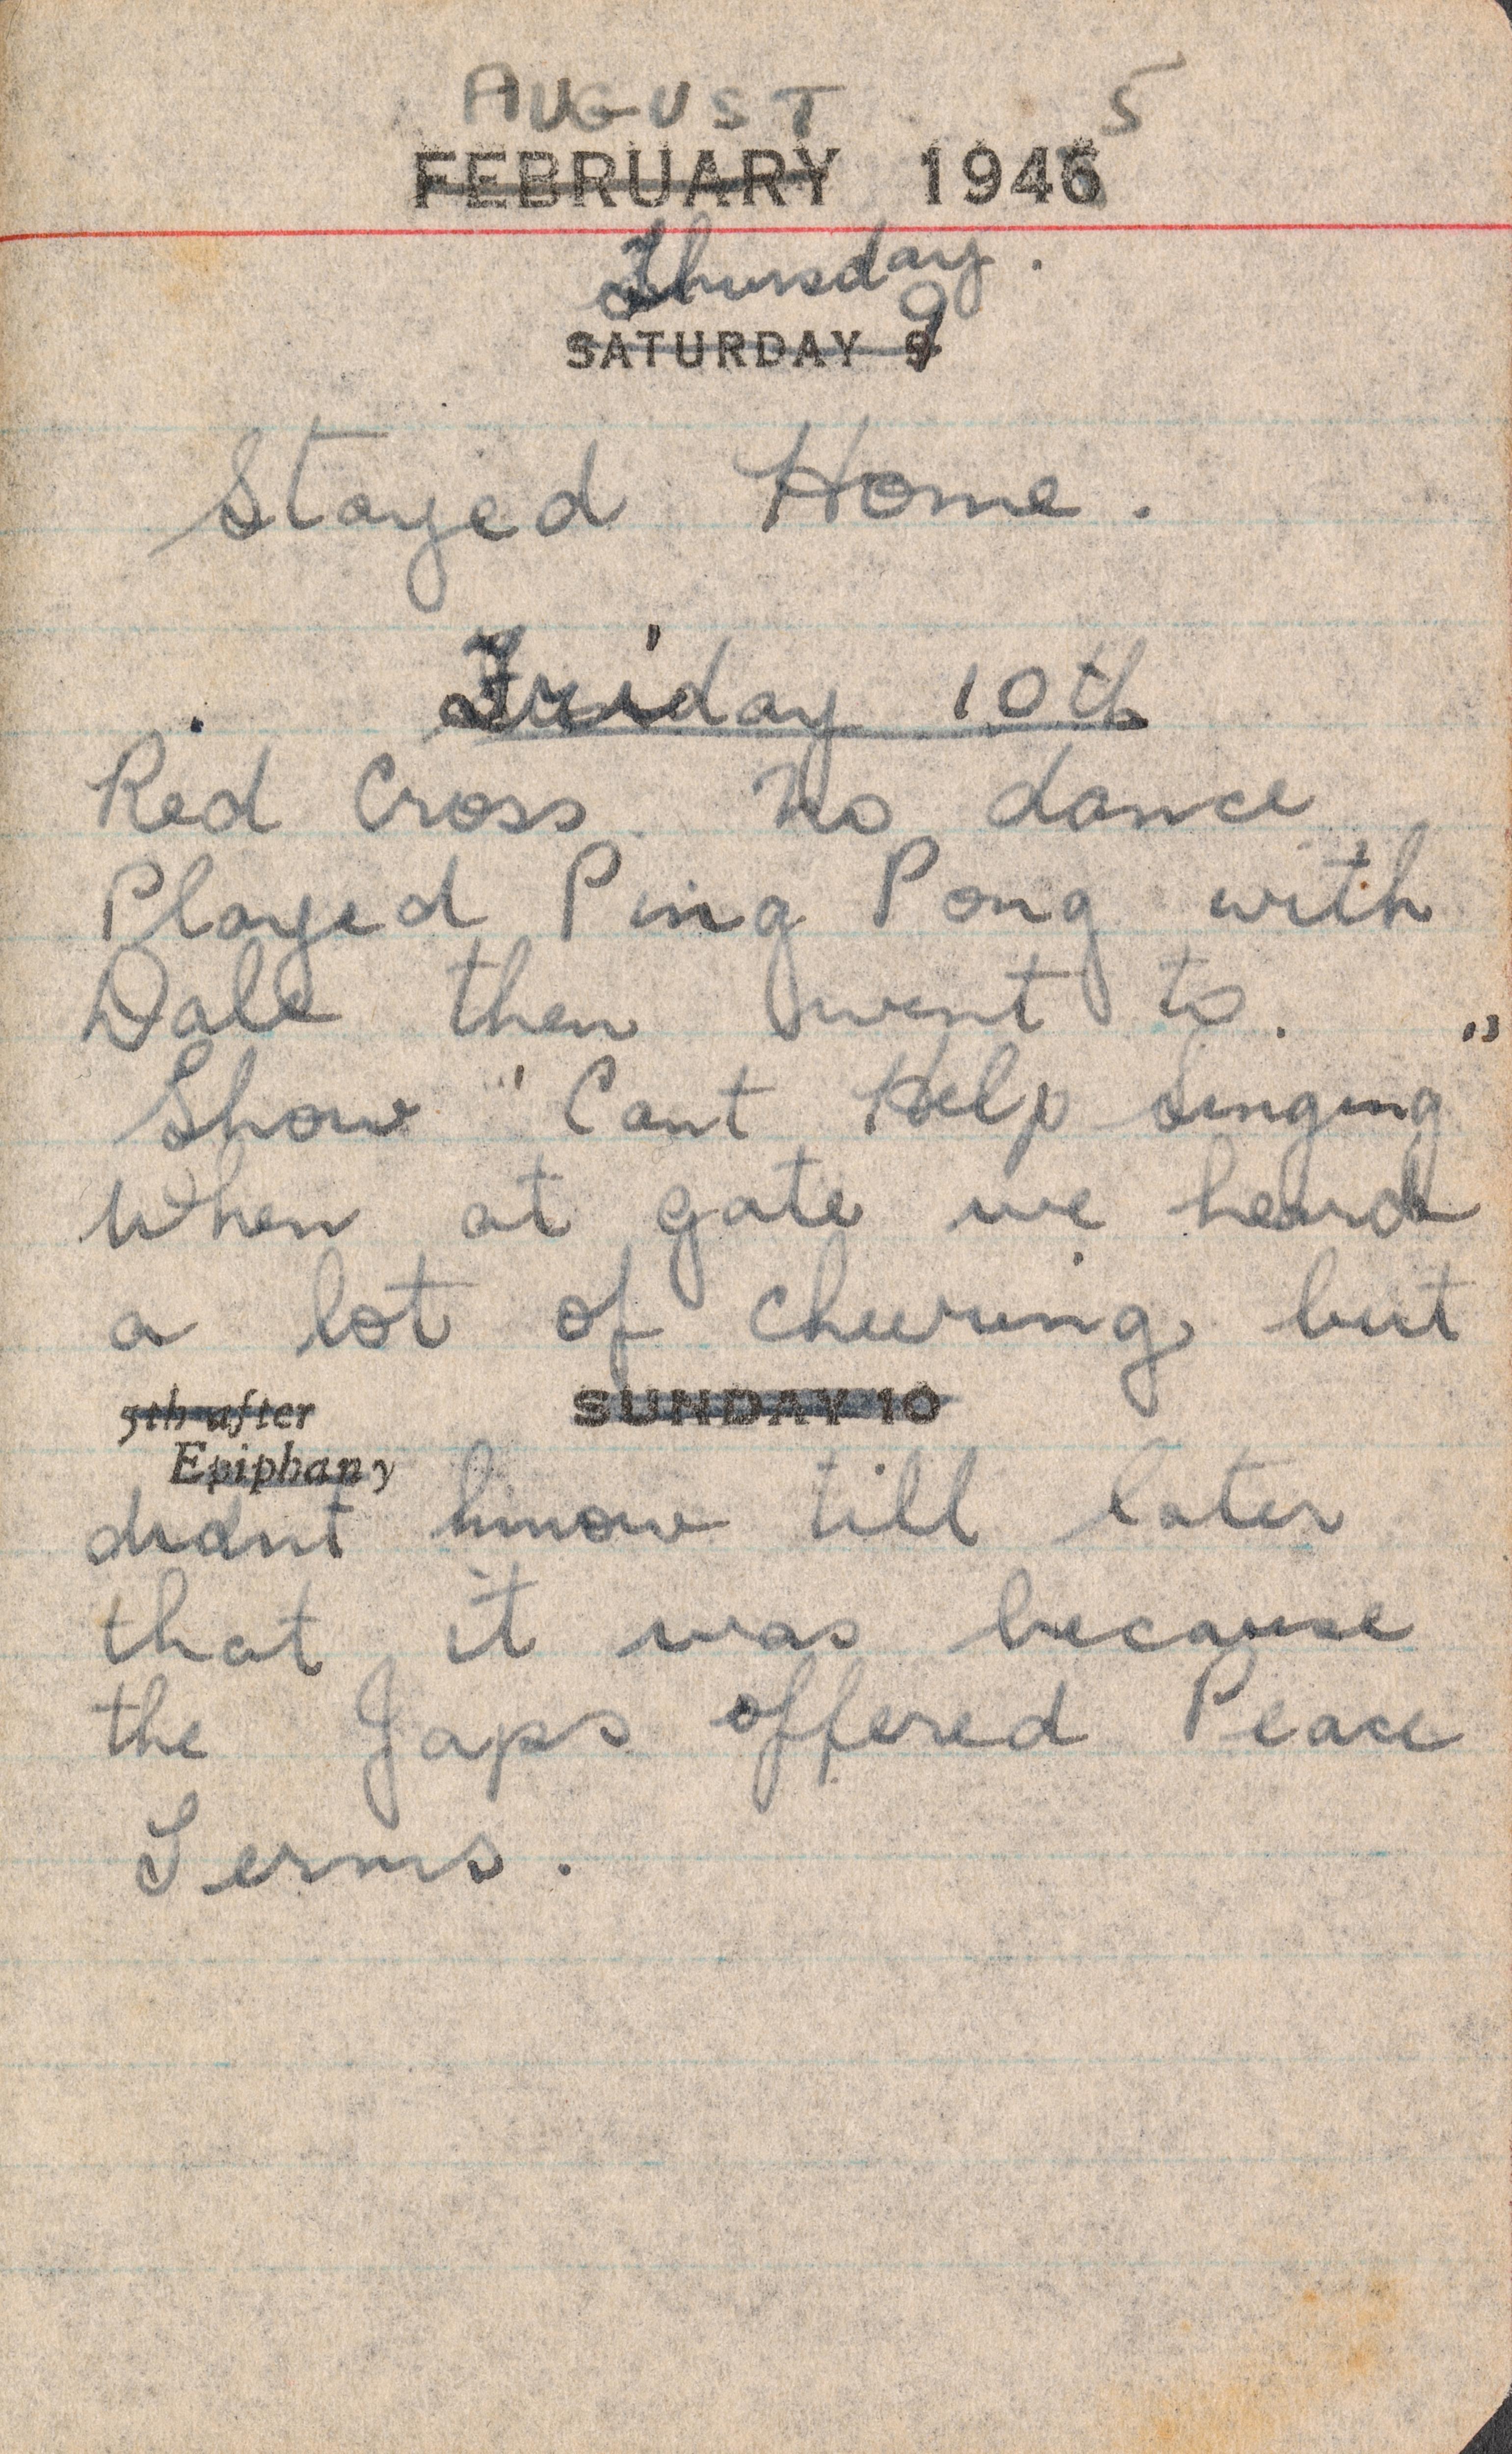 AUGUST 5
FEBRUARY 1946
Thursday.
9
SATURDAY 9
Stayed Home.
Friday 10th
Red Cross. No dance
Played Ping Pong with
Dale then went to.
Show "Cant Help Singing"
When at gate we heard
a lot of cheering but
5th after
Epiphany
SUNDAY 10
didnt know till later
that it was because
the Japs offered Peace
Terms.